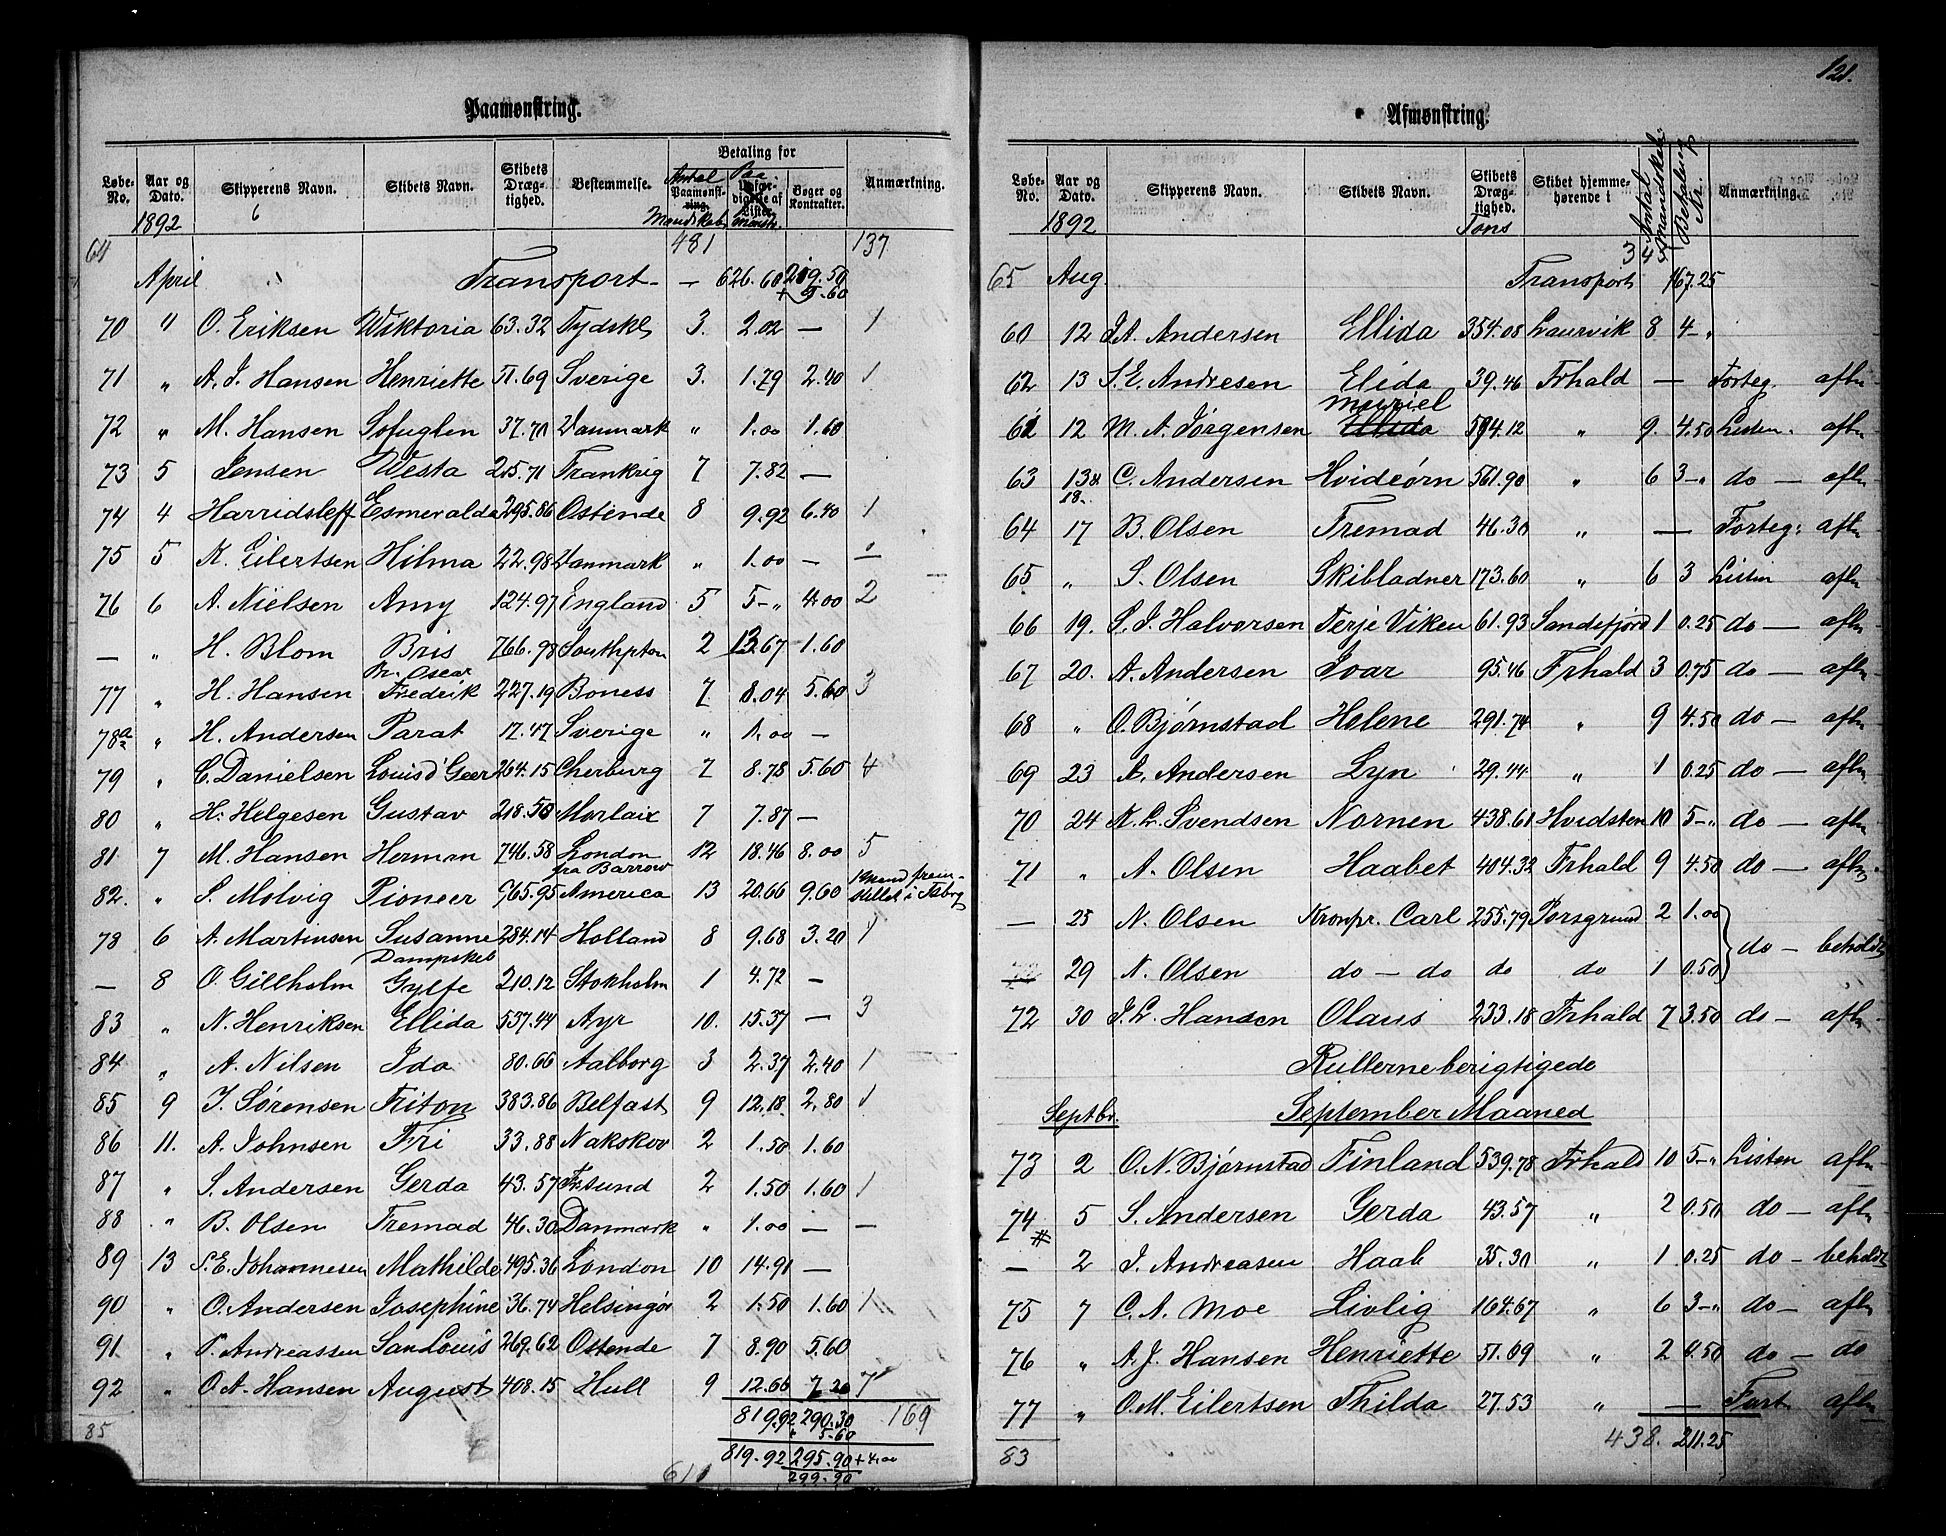 Paamønstring.
Løbe-No. Aar og Dato. Skipperens Navn. Skibets Navn. Skibets Dræg-tighed. Bestemmelse. Antal Paamønst-ring. Mandskab Betaling for Paa- Udfær-digelse af Lister mønstr. Bøger og Kontrakter. Anmærkning.
1892
64 481 137
April Transport — — 626.60 219.50
+ 5.60
70 " O. Eriksen Wiktoria 63.32 Tydskl 3. 2.02 — 1
71 " A. J. Hansen Henriette 51.69 Sverige 3. 1.79 2.40 1
72 " M. Hansen Sofuglen 37.71 Danmark " 1.00 1.60
73 5 Jensen Westa 215.71 Frankrig 7 7.82 —
74 4 Harridsleff Esmeralda 295.86 Ostende 8 9.92 6.40 1
75 5 K. Eilertsen Hilma 22.98 Danmark " 1.00 —
76 6 A. Nielsen Amy 124.97 England 5 5-" 4.00 2
— " H. Blom Bris 766.98 Southpton 2 13.67 1.60
77 " H. Hansen Pr. Oscar Fredrik 227.19 Boness 7 8.04 5.60 3
78a " H. Andersen Parat 17.47 Sverige " 1.00 —
79 " C. Danielsen Louis d'Geer 264.15 Cherburg 7 8.78 5.60 4
80 " H. Helgesen Gustav 218.50 Morlaix 7 7.87 —
81 7 M. Hansen Herman 746.58 London 12 18.46 8.00 5
82. " S. Molvig Pioneer 965.95 fra Barrow America 13 20.66 9.60 1 Mand frem-stillet i Tsborg
78 6 A. Martinsen Susanne 284.14 Holland 8 9.68 3.20 1
— 8 O. Gillholm Dampskib Gylfe 210.12 Stokholm 1 4.72 —
83 " N. Henriksen Ellida 537.44 Ayr 10. 15.37 — 3
84 " A. Nilsen Ida 80.66 Aalborg 3 2.37 2.40 1
85 9 J. Sørensen Triton 383.86 Belfast 9 12.18 2.80 1
86 11. A. Johnsen Fri 33.88 Nakskov 2 1.50 1.60
87 " S. Andersen Gerda 43.57 Frsund 2 1.50 1.60 1
88 " B. Olsen Fremad 46.30 Danmark " 1.00 — —
89 13 S. E. Johannesen Mathilde 495.36 London 10 14.91 —
90 " O. Andersen Josephine 36.74 Helsingør 2 1.50 1.60 1
91 " P. Andreassen San Louis 269.62 Ostende 7 8.90 5.60
92 " O. A. Hansen August 408.15 Hull 9 12.66 7.20 7
85 819.92 290.30 169
" 5.60
819.92 295.90 + 4.00
611 299.90
121.
Afmønstring.
Løbe-No. Aar og Dato. Skipperens Navn. Skibets Navn. Skibets Dræg-tighed. Skibet hjemme-hørende i Antal Mandskab Betaling Kr. Anmærkning.
1892 Tons
344
65 Aug Transport 167.25
60 12 J. A. Andersen Ellida 354.08 Laurvik 8 4-"
62 13 S. E. Andresen Elida 39.46 Frhald — Forteg. afln
61 12 M. A. Jørgensen Muriel Ellida 594.12 " 9. 4.50 Listen. afln
63 13 & 18. C. Andersen Hvideørn 561.90 " 6 3-" do — afln
64 17 B. Olsen Fremad 46.30 " — Forteg: afln
65 " S. Olsen Skibladner 173.60 " 6 3 Listen afln
66 19. S. J. Halvorsen Terje Viken 61.93 Sandefjord 1 0.25 do — afln
67 20. A. Andersen Ivar 95.46 Frhald 3 0.75 do — afln
68 " O. Bjørnstad Helene 291.74 " 9 4.50 do — afln
69 23 A. Andersen Lyn 29.44 " 1 0.25 do — afln
70 24 N. L. Svendsen Nornen 438.61 Hvidsten 10 5-" do — afln
71 " A. Olsen Haabet 404.32 Frhald 9 4.50 do — afln
— 25 N. Olsen Kronpr. Carl 255.79 Porsgrund 2 1.00
do — beholdt
72 29 N. Olsen do — do do do 1 0.50
72 30 J. L. Hansen Olaus 233.18 Frhald 7 3.50 do — afln
Rullerne berigtigede
Septbr. September Maaned
73 2 O. N. Bjørnstad Finland 539.78 Frhald 10 5-" Listen afln
74 5 S. Andersen Gerda 43.57 " 2 0.50 do — afln
# — 2 J. Andreasen Haab 35.30 " 1 0.25 do — beholdt
75 7 C. A. Moe Livlig 164.67 " 6 3-" do — afln
76 " A. J. Hansen Henriette 51.69 " 2 0.50 do — do
77 " O. M. Eilertsen Thilda 27.53 " — Fort. afln
83 438. 211.25